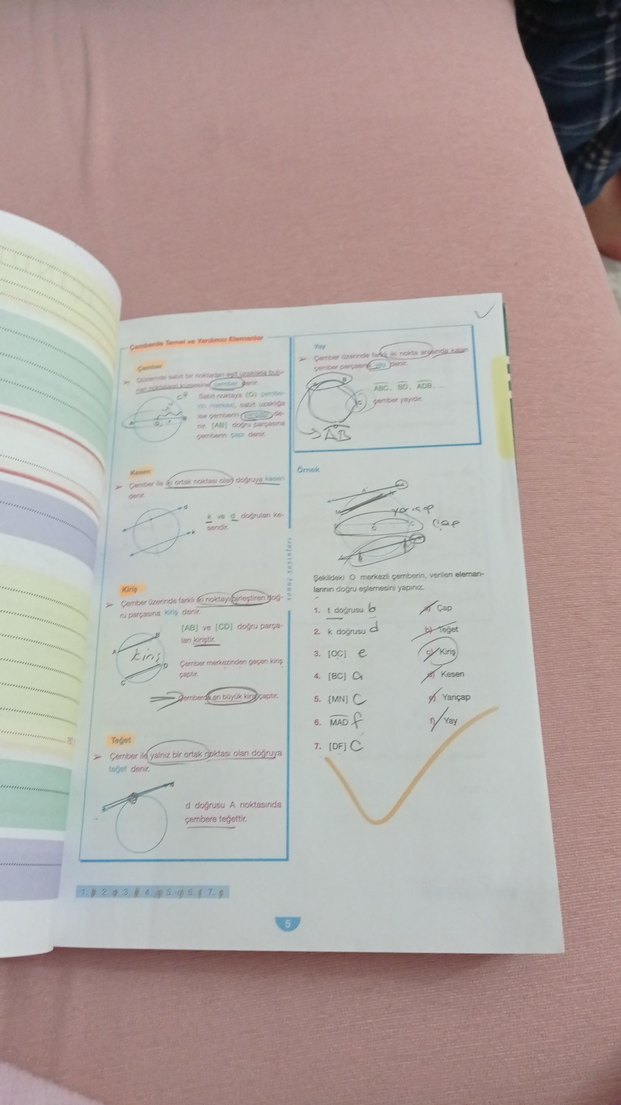 Çemberde Temel ve Yardımcı Elemanlar
Çember
Düzlemde sabit bir noktadan eşit uzaklıkta bulu-
nan noktaların kümesine çember denir.
Sabit noktaya (O) çembe-
rin merkezi, sabit uzaklığa
ise çemberin de-
nir. [AB] doğru parçasına
çemberin çapı denir.
Kesen
Çember ile iki ortak noktası olan doğruya kesen
denir.
k ve d doğruları ke-
sendir.
Kiriş
Çember üzerinde farklı iki noktayı birleştiren doğ-
ru parçasına kiriş denir.
[AB] ve [CD] doğru parça-
ları kiriştir.
kiriş
Çember merkezinden geçen kiriş
çaptır.
Çemberde en büyük kiriş çaptır.
Teğet
Çember ile yalnız bir ortak noktası olan doğruya
teğet denir.
d doğrusu A noktasında
çembere teğettir.
Yay
Çember üzerinde farklı iki nokta arasında kalan
çember parçasına yay denir.
ABC, BD, ADB...
çember yayıdır.
AB
Örnek
yarıçap
çap
Şekildeki O merkezli çemberin, verilen eleman-
larının doğru eşlemesini yapınız.
1. t doğrusu b a) Çap
2. k doğrusu d b) Teğet
3. [OC] e c) Kiriş
4. [BC] a d) Kesen
5. [MN] c e) Yarıçap
6. MAD f f) Yay
7. [DF] c
5